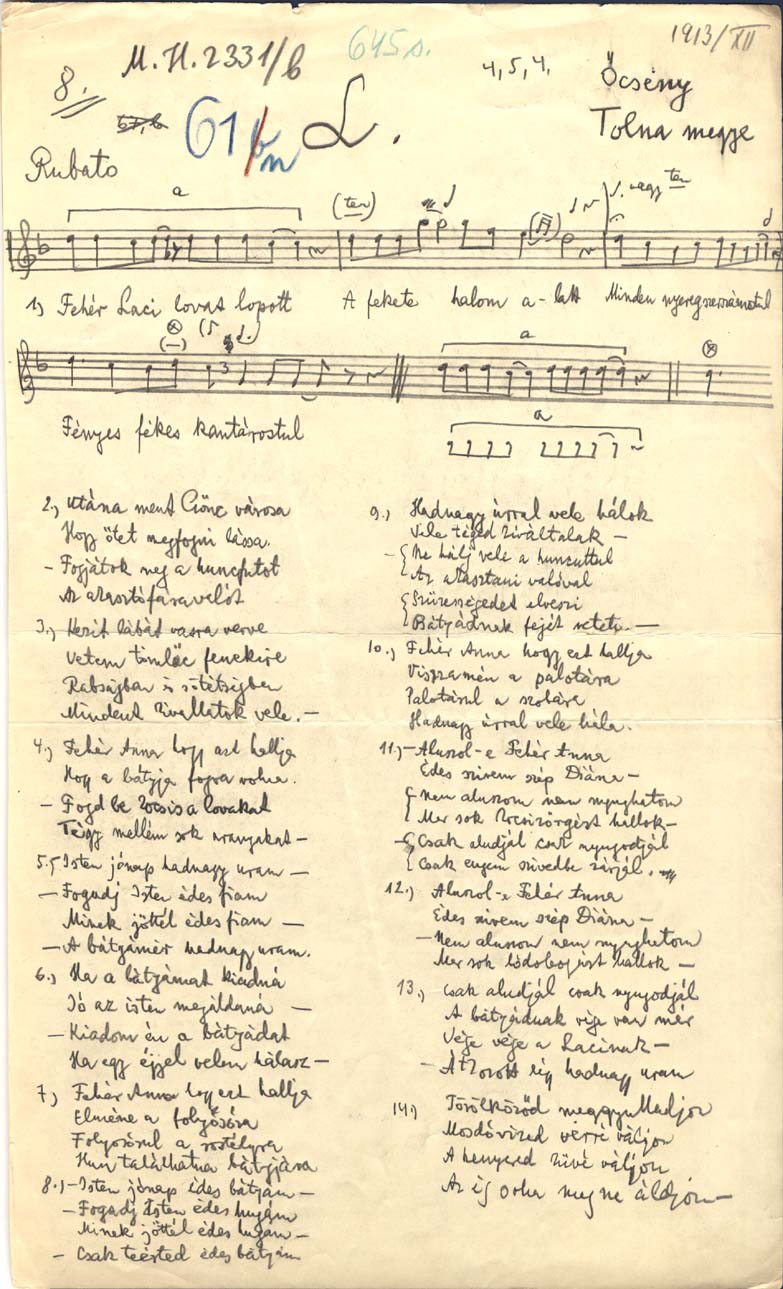 1913/XII
M.H.2331/b
645s.
4,5,4,
8.
Őcsény
61
L.
Tolna megye
Rubato
a
(ten)
vagy ten
1) Fehér Laci lovat lopott A fekete halom a-latt Minden nyeregszerszámostul
a
3
Fényes fékes kantárostul
a
2.) Utána ment Gönc városa
Hogy ötet megfogni lássa.
- Fogjátok meg a huncfutot
Az akasztófáravalót
3.) Kezit lábát vasra verve
Vetem tömlöc fenekire
Rabságban is sötétségben
Mindent
vele.—
4.) Fehér Anna hogy azt hallja
Hogy a bátyja fogva volna.
- Fogd be kocsis a lovakat
Tégy mellém sok aranyakat —
5.) Isten jónap hadnagy uram —
— Fogadj Isten édes fiam
Minek jöttél édes fiam —
— A bátyámér hadnagy uram.
6.) Ha a bátyámat kiadná
Jó az isten megáldaná —
— Kiadom én a bátyádat
Ha egy éjjel velem hálasz —
7.) Fehér Anna hogy ezt hallja
Elméne a folyósóra
Folyosórul a rostélyra
Hun találhatna bátyjára
8.) — Isten jónap édes bátyám —
— Fogadj Isten édes hugám
Minek jöttél édes hugám —
— Csak teérted édes bátyám
9.) Hadnagy úrral vele hálok
Vele téged kiváltalak —
— Ne hálj vele a huncuttul
Az akasztani valóval
Szüzességedet elveszi
Bátyádnak fejét
—
10.) Fehér Anna hogy ezt hallja
Visszamén a palotára
Palotárul a szobára
Hadnagy úrral vele hála.
11.) — Aluszol-e Fehér Anna
Édes szivem szép Diána —
Nem aluszom nem nyughatom
Mer sok hallok —
— Csak aludjál csak nyugodjál
Csak engem szivedbe zárjál.
12.) Aluszol-e Fehér Anna
Édes szivem szép Diána —
— Nem aluszom nem nyughatom
Mer sok lódobogást hallok —
13.) Csak aludjál csak nyugodjál
A bátyádnak vége van már
Vége vége a Lacinak —
— Átkozott légy hadnagy uram
14.) Törölköződ meggyulladjon
Mosdóvized vérré váljon
A kenyered kűvé váljon
Az ég soha meg ne áldjon —